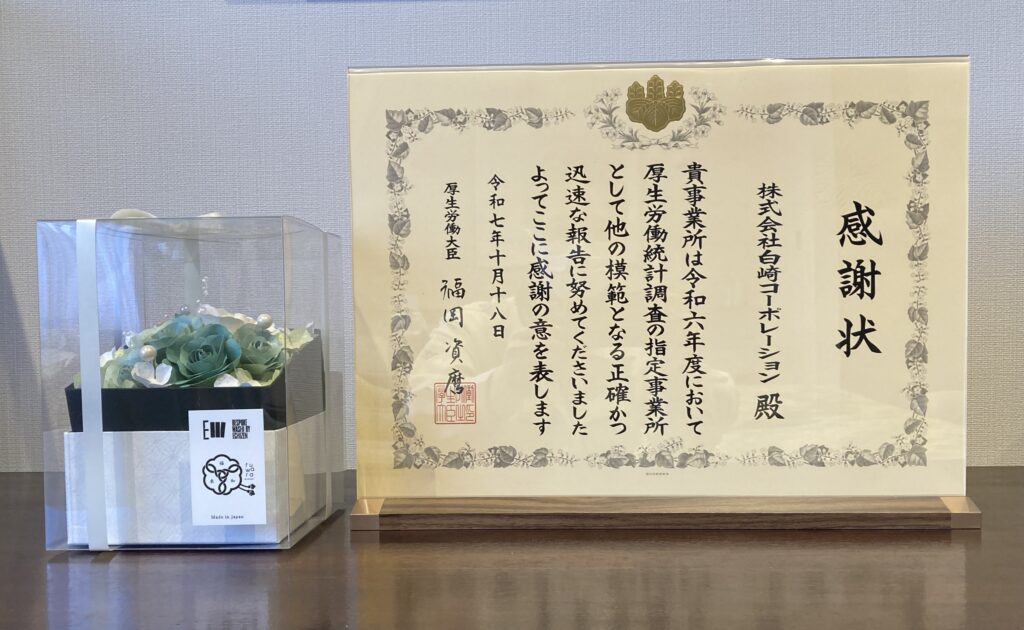 感謝状
株式会社白崎コーポレーション 殿
貴事業所は令和六年度において
厚生労働統計調査の指定事業所
として他の模範となる正確かつ
迅速な報告に努めてくださいました
よってここに感謝の意を表します
令和七年十月十八日
厚生労働大臣 福岡資麿
EW
BESPOKE
WASHI BY
ECHIZEN
Made in Japan